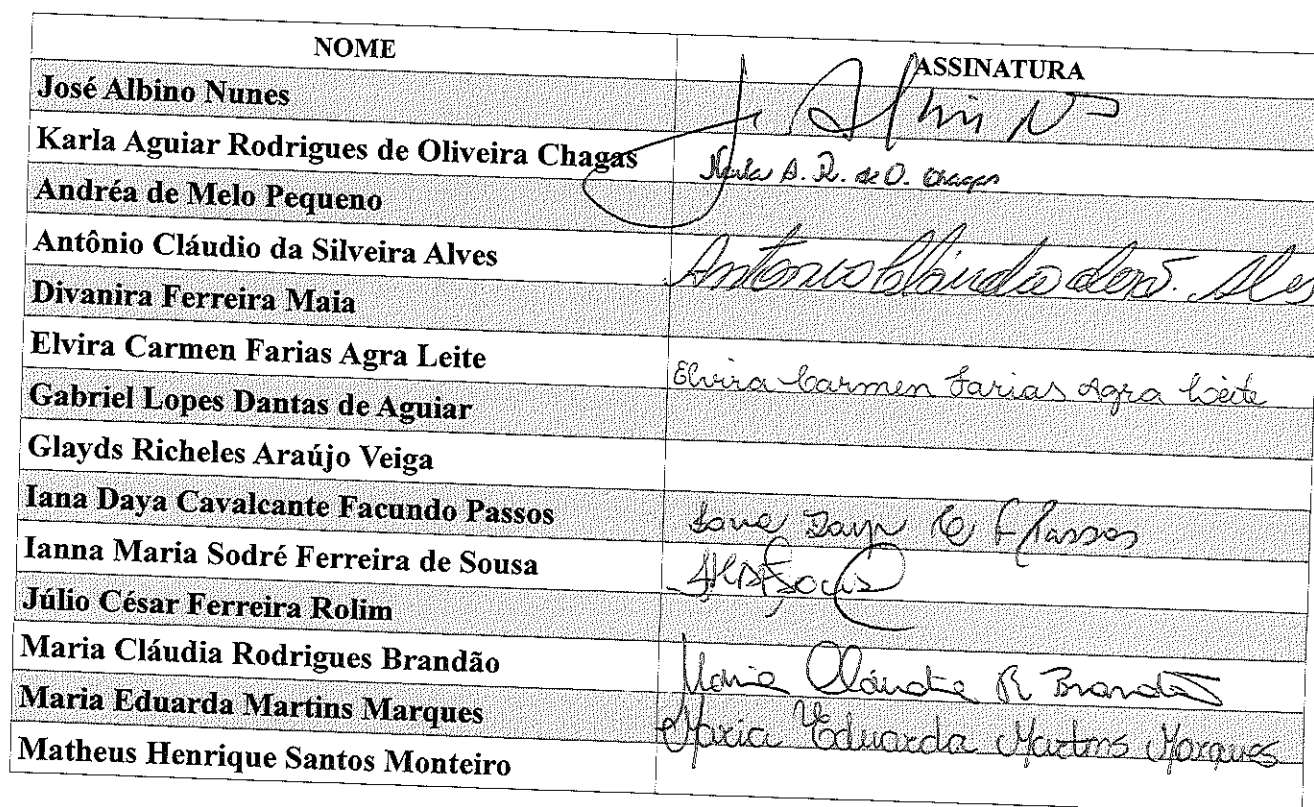 NOME ASSINATURA
José Albino Nunes
Karla Aguiar Rodrigues de Oliveira Chagas Karla A. R. de O. Chagas
Andréa de Melo Pequeno
Antônio Cláudio da Silveira Alves Antonio Cláudio
Divanira Ferreira Maia
Elvira Carmen Farias Agra Leite Elvira Carmen Farias Agra Leite
Gabriel Lopes Dantas de Aguiar
Glayds Richeles Araújo Veiga
Iana Daya Cavalcante Facundo Passos Iana Daya C F Passos
Ianna Maria Sodré Ferreira de Sousa
Júlio César Ferreira Rolim
Maria Cláudia Rodrigues Brandão Maria Cláudia R Brandão
Maria Eduarda Martins Marques Maria Eduarda Martins Marques
Matheus Henrique Santos Monteiro